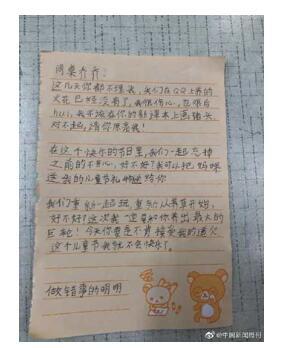 同桌乔乔：
这几天你都不理我，我们在QQ上养的
火花已经没有了，我很伤心，也很自
hui，我不该在你的影课本上画猪头，
对不起，请你原谅我！
在这个快乐的节日里，我们一起忘掉
之前的不开心，好不好？我可以把妈咪
送我的儿童节礼物送给你
我们重新一起玩，重新从养草开始，
好不好？这次我一定要和你养出最大的
巨轮！今天你要是不肯接受我的道歉
这个儿童节我就不会快乐了。
做错事的明明
@中国新闻周刊